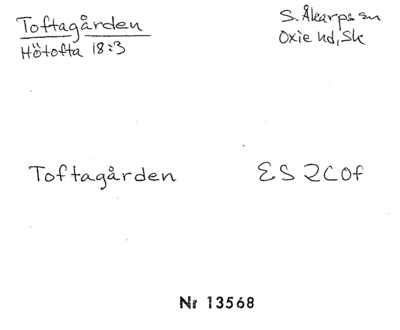 Toftagården
Hötofta 18:3
S. Åkarps sn
Oxie hd, Sk
Toftagården
ES 2C0f
Nr 13568